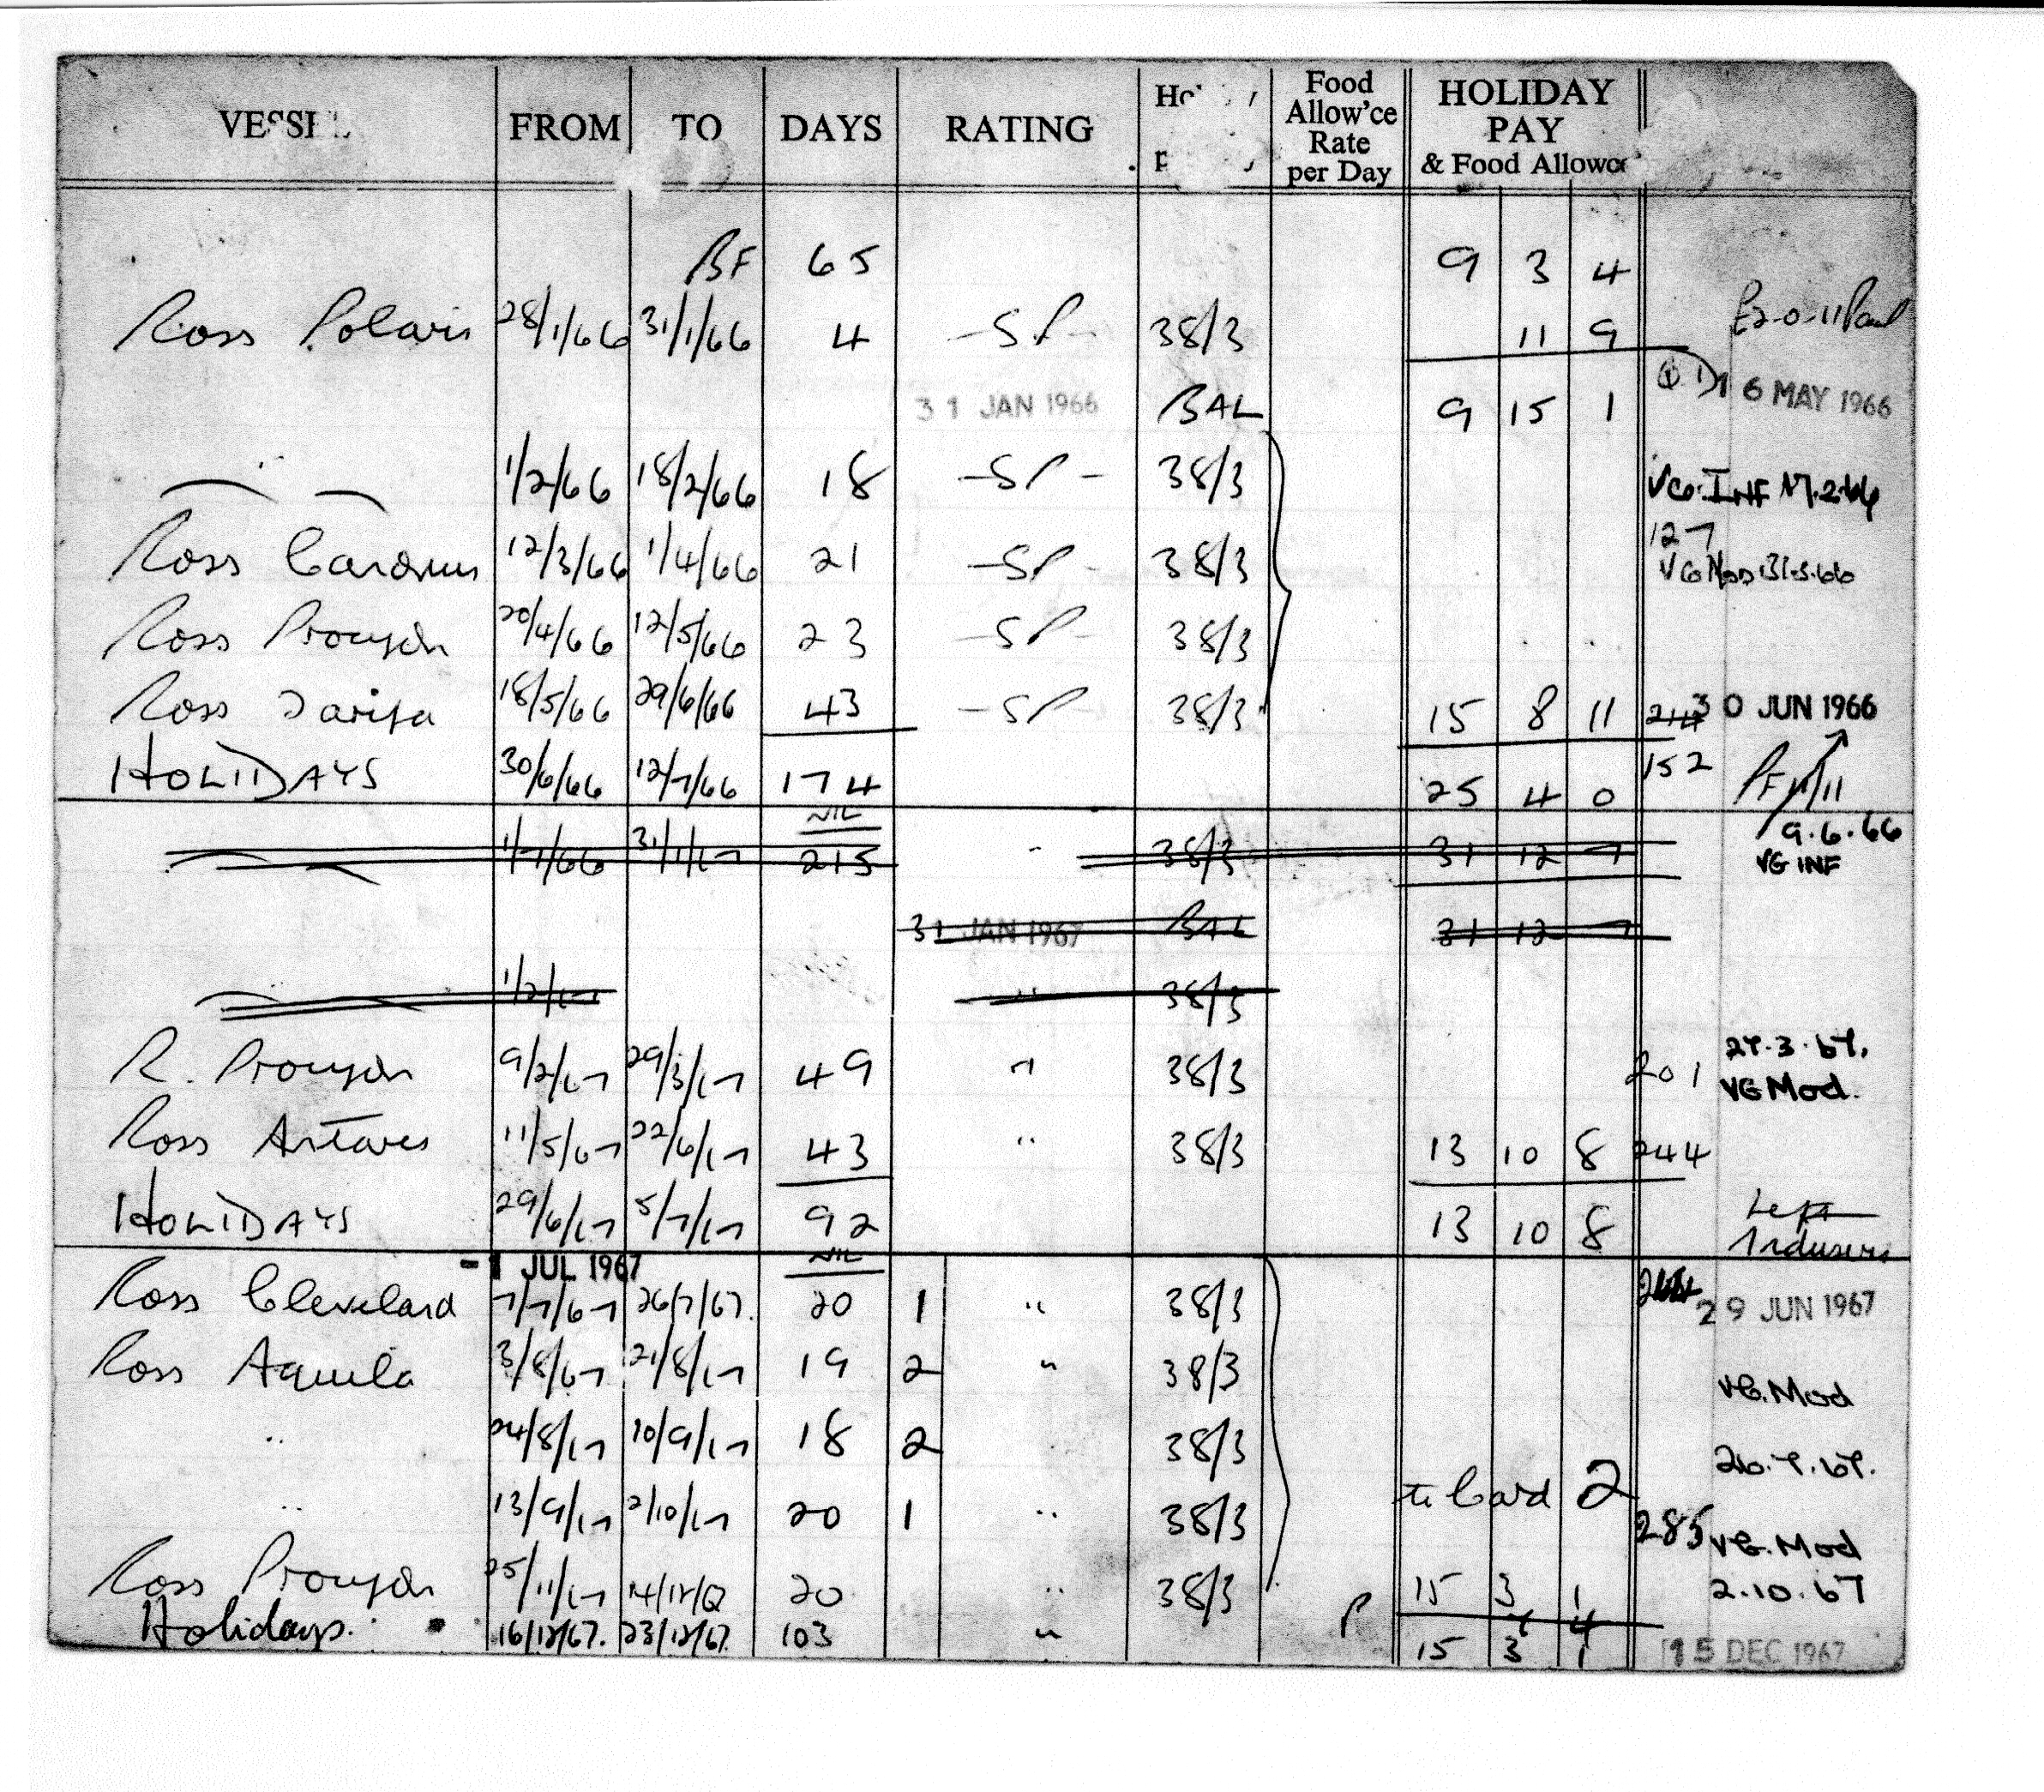 VESSEL FROM TO DAYS RATING Food Allow'ce Rate per Day HOLIDAY PAY & Food Allowce
BF 65 9 3 4
Ross Polaris 28/1/66 31/1/66 4 -SP- 38/3 11 9
31 JAN 1966 BAL 9 15 1 16 MAY 1966
1/2/66 18/2/66 18 -SP- 38/3 VGO. INF 17.2.66
127
Ross Canorus 12/3/66 1/4/66 21 -SP- 38/3 VGO Mod 31.3.66
Ross Procyon 20/4/66 12/5/66 23 -SP- 38/3
Ross Tarifa 18/5/66 29/6/66 43 -SP- 38/3 15 8 11 30 JUN 1966
HOLIDAYS 30/6/66 12/7/66 174 25 4 0 152
NIL 9.6.66
1/7/66 31/1/67 215 " 38/3 31 12 7 VG INF
31 JAN 1967 BAL 31 12 7
1/2/67 " 38/3
R. Procyon 9/2/67 29/3/67 49 " 38/3 201 27.3.67. VG Mod.
Ross Antares 11/5/67 22/6/67 43 " 38/3 13 10 8 244
HOLIDAYS 29/6/67 5/7/67 92 13 10 8 Left Industry
- 1 JUL 1967 NIL
Ross Cleveland 7/7/67 26/7/67. 20 1 " 38/3 264 29 JUN 1967
Ross Aquila 3/8/67 21/8/67 19 2 " 38/3 VG. Mod
" 24/8/67 10/9/67 18 2 38/3 26.7.67.
to Card 2
" 13/9/67 2/10/67 20 1 " 38/3 285 VG. Mod
Ross Procyon 25/11/67 14/12/67 20 " 38/3 15 3 1 2.10.67
Holidays. 16/12/67. 23/12/67. 103 " P 15 3 1 15 DEC 1967